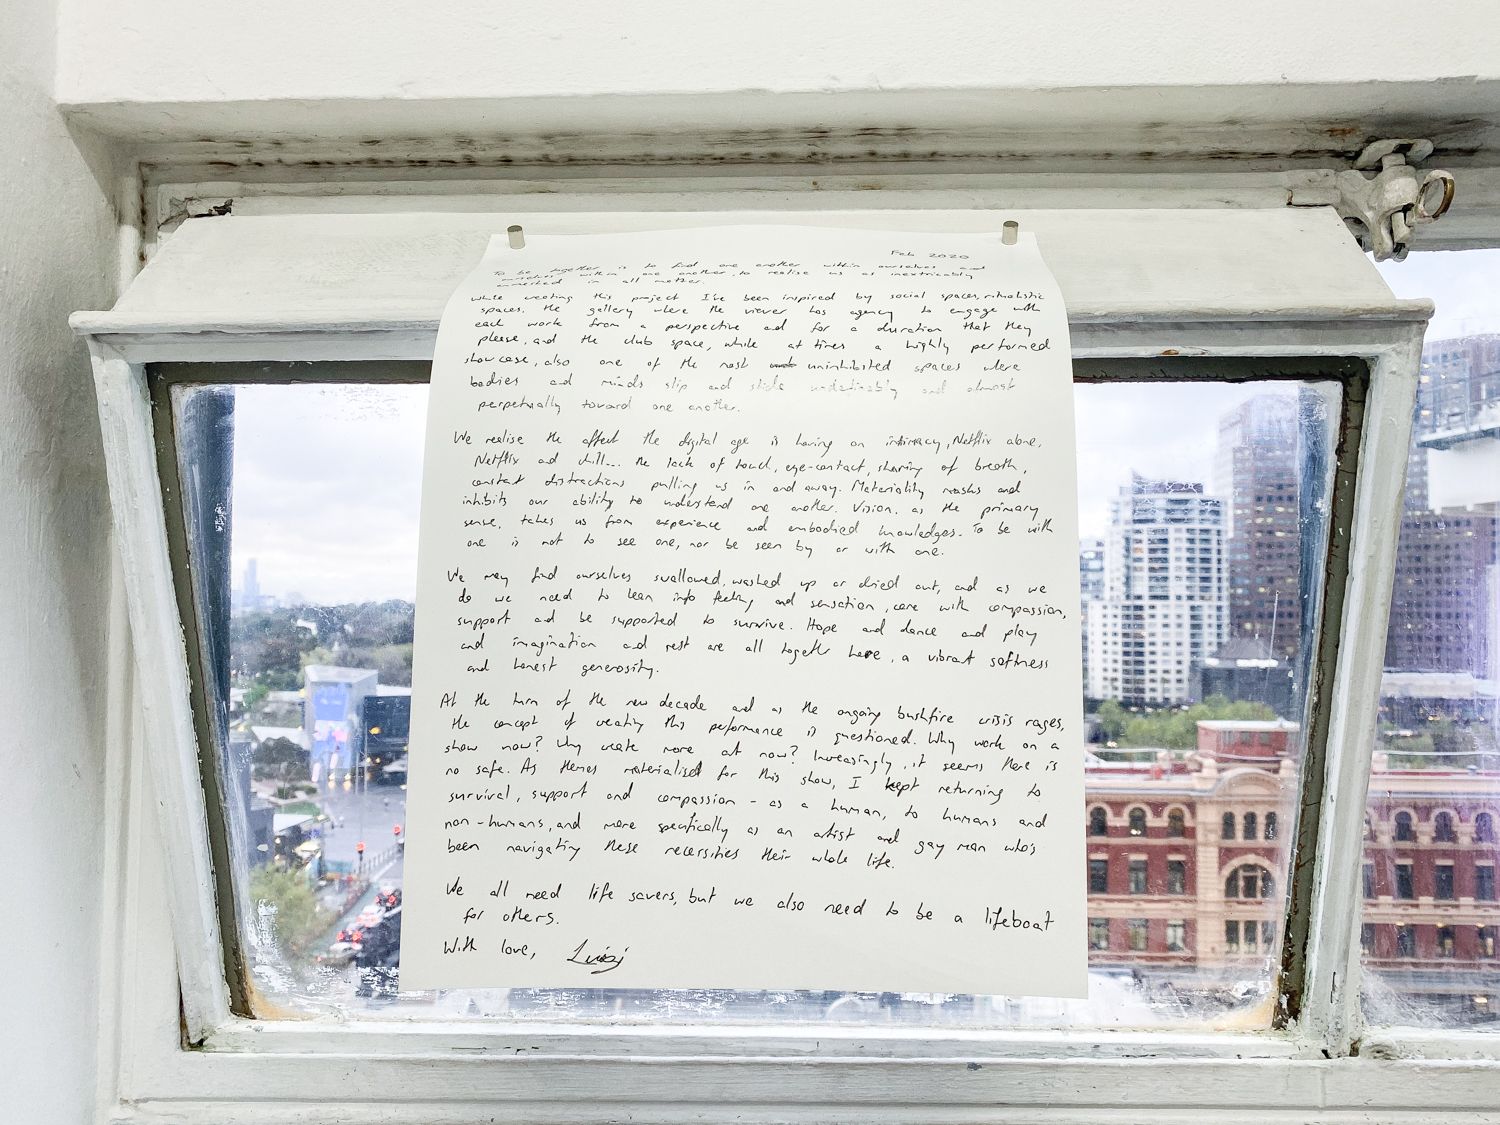 Feb 2020
To be together is to find one another within ourselves and
ourselves within one another, to realise us as inextricably
enmeshed in all matter.
While creating this project I've been inspired by social spaces, ritualistic
spaces. The gallery where the viewer has agency to engage with
each work from a perspective and for a duration that they
please, and the club space, while at times a highly performed
showcase, also one of the most uninhibited spaces where
bodies and minds slip and slide undefinably and almost
perpetually toward one another.
We realise the affect the digital age is having on intimacy, Netflix alone,
Netflix and chill... the lack of touch, eye-contact, sharing of breath,
constant distractions pulling us in and away. Materiality masks and
inhibits our ability to understand one another. Vision, as the primary
sense, takes us from experience and embodied knowledges. To be with
one is not to see one, nor be seen by or with one.
We may find ourselves swallowed, washed up or dried out, and as we
do we need to lean into feeling and sensation, care with compassion,
support and be supported to survive. Hope and dance and play
and imagination and rest are all together here, a vibrant softness
and honest generosity.
At the turn of the new decade and as the ongoing bushfire crisis rages,
the concept of creating this performance is questioned. Why work on a
show now? Why create more art now? Increasingly, it seems there is
no safe. As themes materialised for this show, I kept returning to
survival, support and compassion - as a human, to humans and
non-humans, and more specifically as an artist and gay man who's
been navigating these necessities their whole life.
We all need life savers, but we also need to be a lifeboat
for others.
With love, Luigi